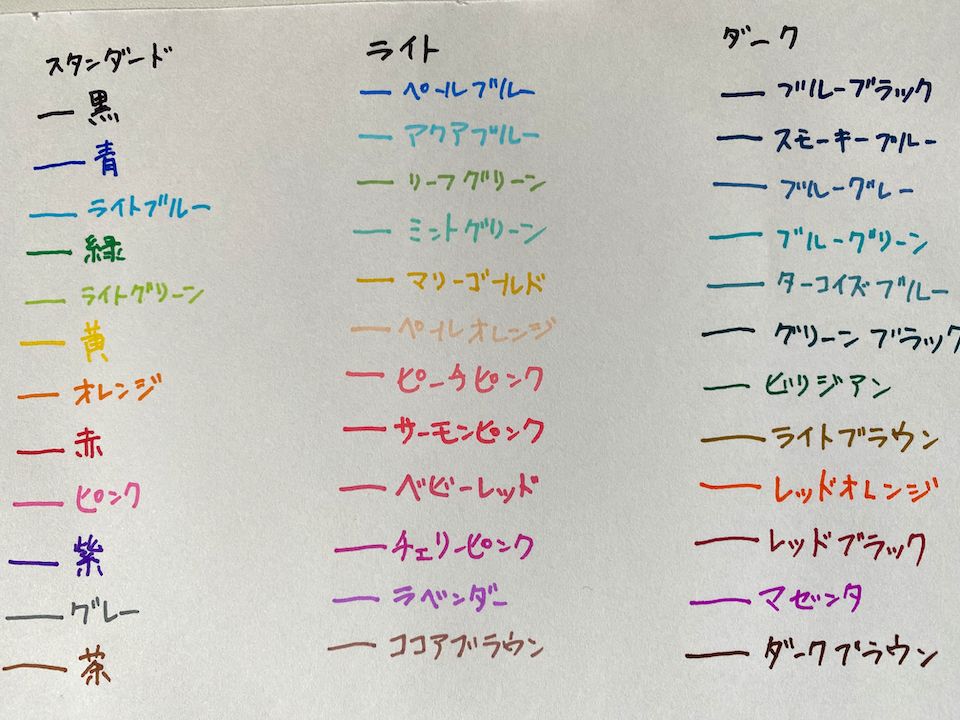 スタンダード
黒
青
ライトブルー
緑
ライトグリーン
黄
オレンジ
赤
ピンク
紫
グレー
茶
ライト
ペールブルー
アクアブルー
リーフグリーン
ミントグリーン
マリーゴールド
ペールオレンジ
ピーチピンク
サーモンピンク
ベビーレッド
チェリーピンク
ラベンダー
ココアブラウン
ダーク
ブルーブラック
スモーキーブルー
ブルーグレー
ブルーグリーン
ターコイズブルー
グリーンブラック
ビリジアン
ライトブラウン
レッドオレンジ
レッドブラック
マゼンタ
ダークブラウン